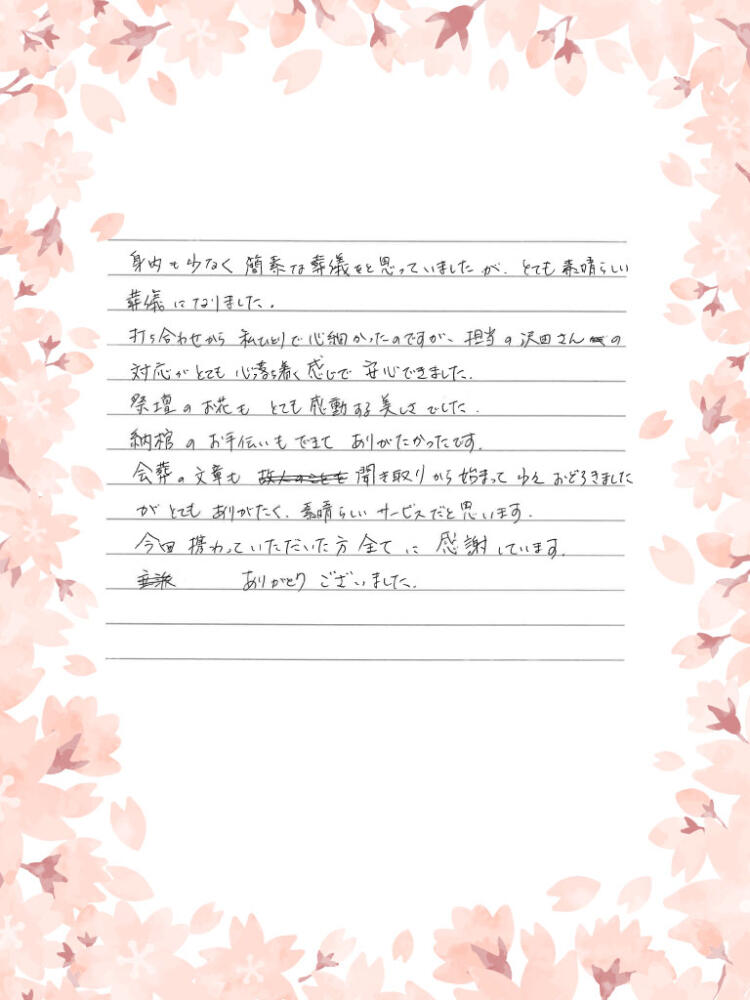 身内も少なく 簡素な葬儀をと思っていましたが、とても素晴らしい
葬儀になりました。
打ち合わせから 私ひとりで心細かったのですが、担当の沢田さんの
対応がとても 心落ち着く感じで 安心できました。
祭壇のお花も とても感動する美しさでした。
納棺のお手伝いもできて ありがたかったです。
会葬の文章も 聞き取りから始まって おどろきました
がとても ありがたく、素晴らしいサービスだと思います。
今回 携わっていただいた方全てに 感謝しています。
ありがとうございました。